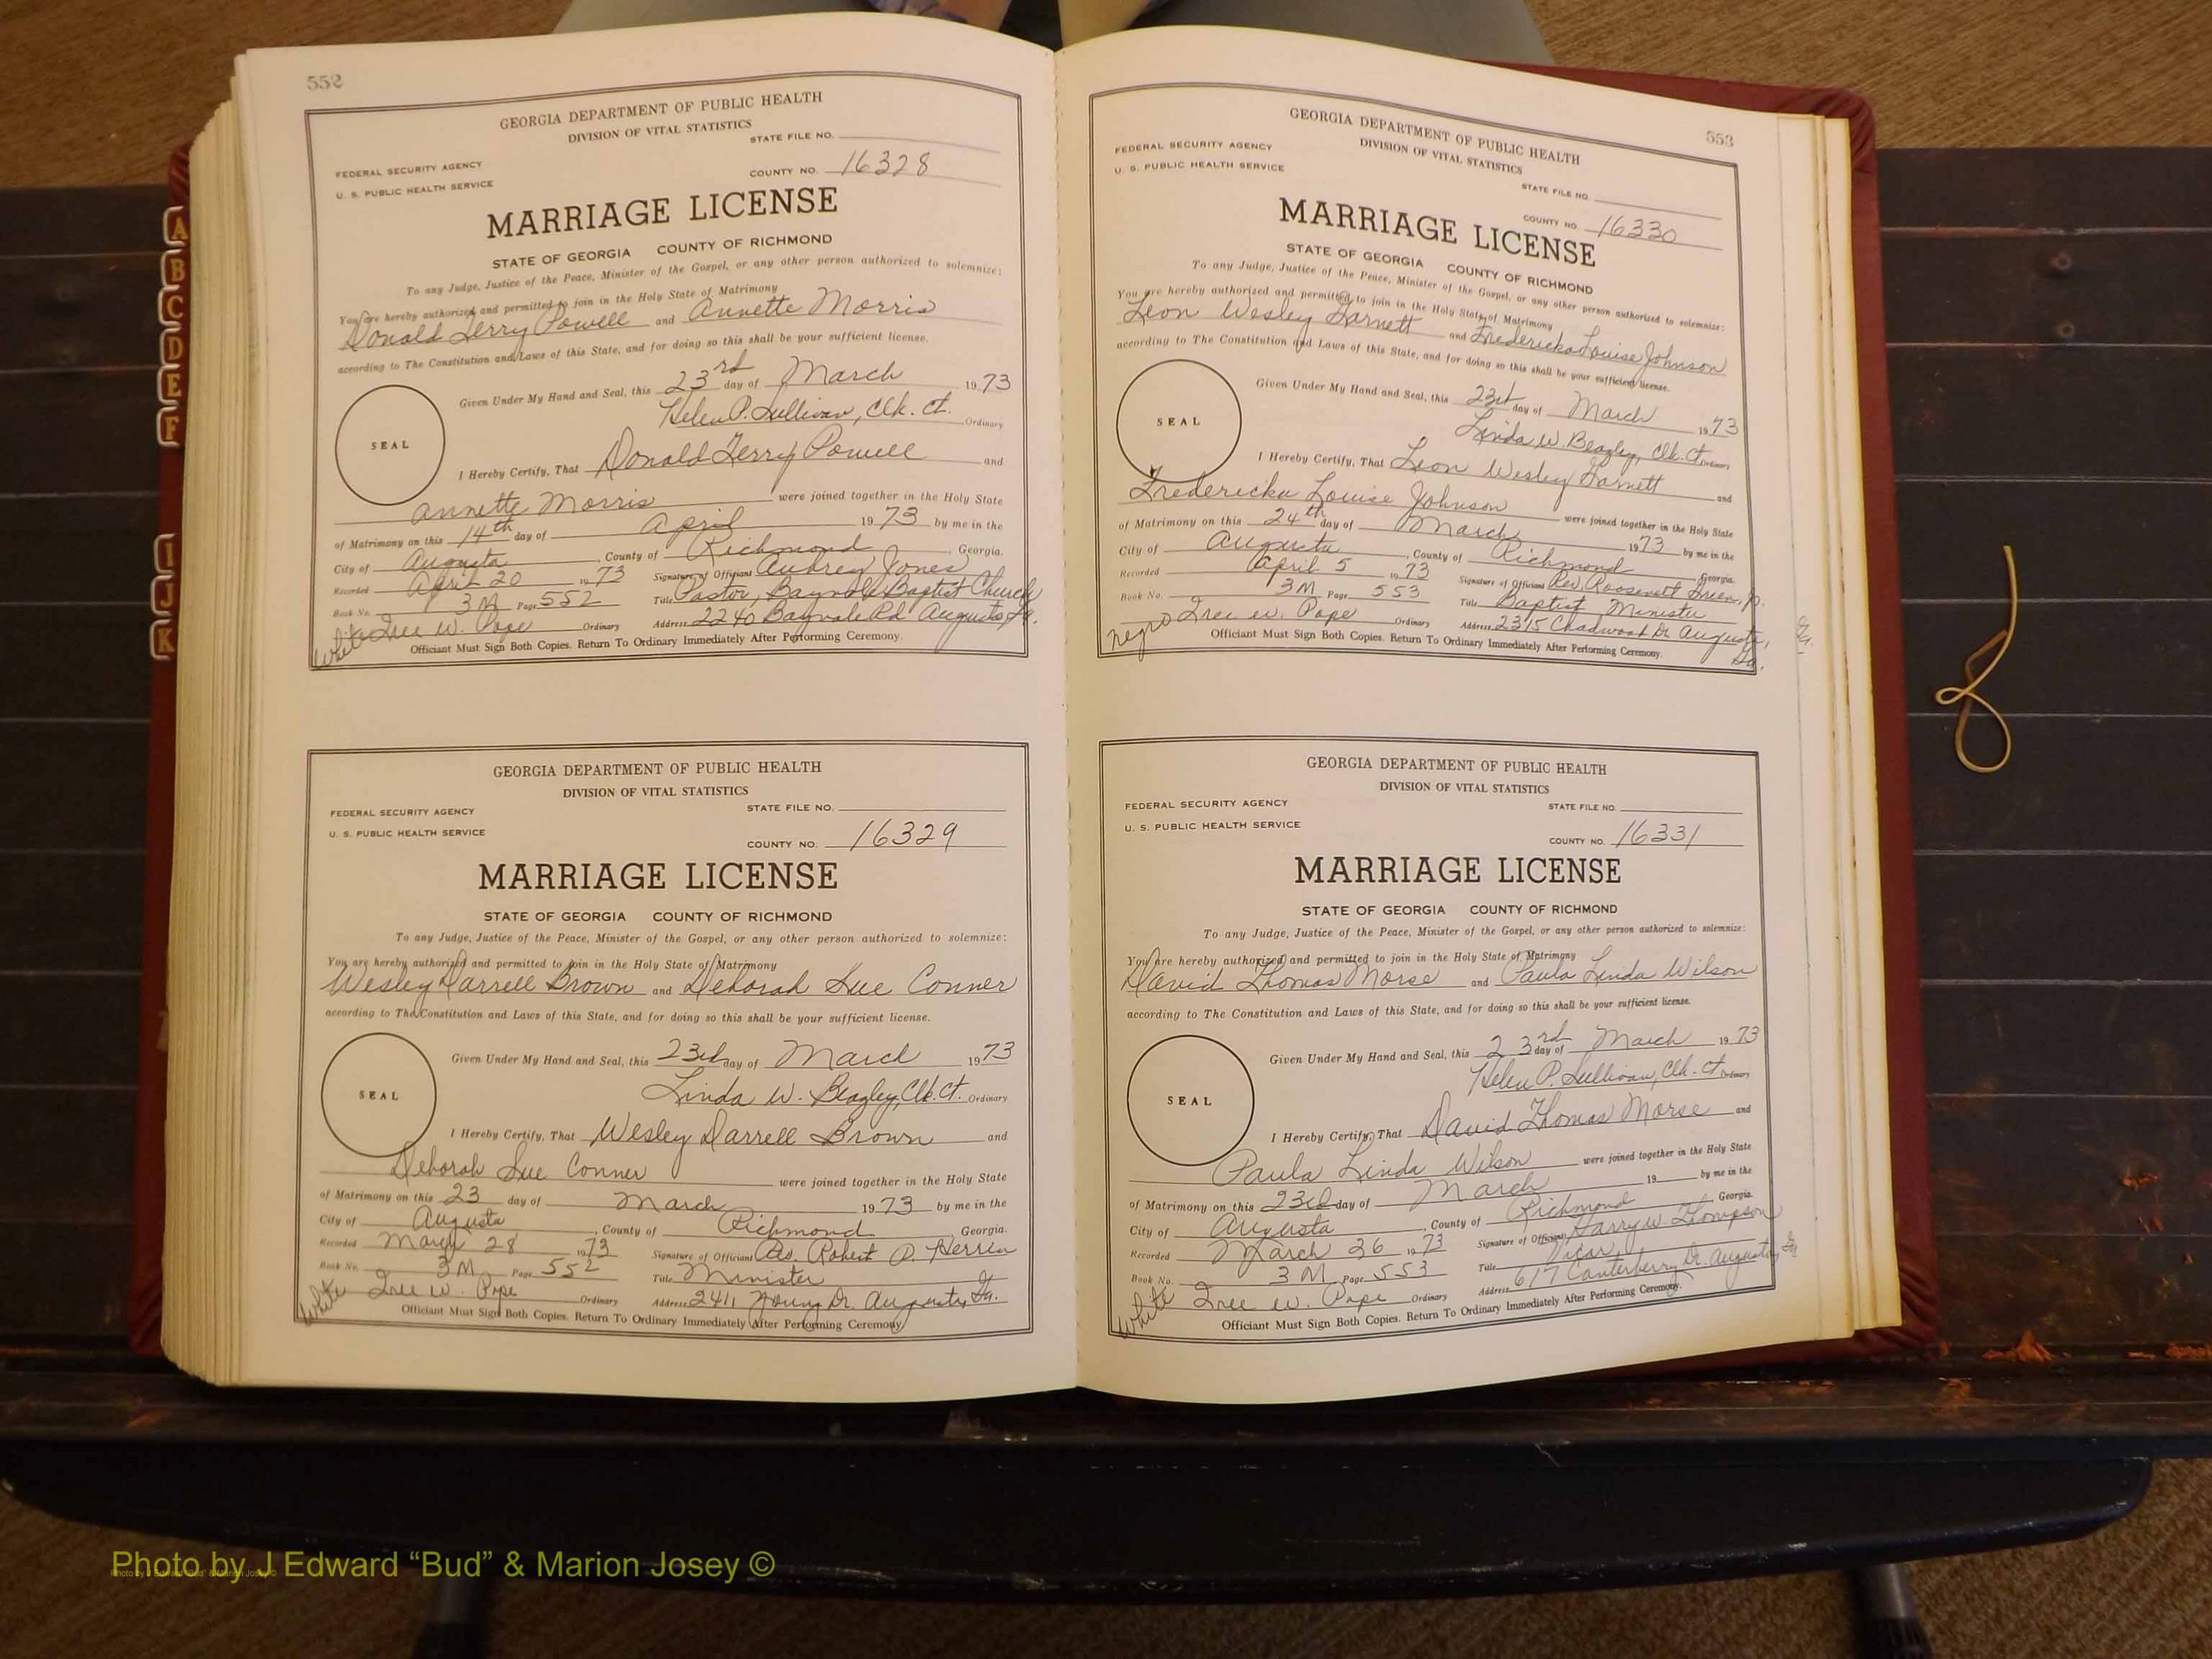 552
GEORGIA DEPARTMENT OF PUBLIC HEALTH
DIVISION OF VITAL STATISTICS
STATE FILE NO.
FEDERAL SECURITY AGENCY
U. S. PUBLIC HEALTH SERVICE
COUNTY NO. 16328
MARRIAGE LICENSE
STATE OF GEORGIA COUNTY OF RICHMOND
To any Judge, Justice of the Peace, Minister of the Gospel, or any other person authorized to solemnize:
You are hereby authorized and permitted to join in the Holy State of Matrimony
Donald Terry Powell and Annette Morris
according to The Constitution and Laws of this State, and for doing so this shall be your sufficient license.
Given Under My Hand and Seal, this 23rd day of March 1973
Helen P. Sullivan, Clk. Ct. Ordinary
SEAL
I Hereby Certify, That Donald Terry Powell and
Annette Morris were joined together in the Holy State
of Matrimony on this 14th day of April 1973 by me in the
City of Augusta, County of Richmond, Georgia.
Recorded April 20 1973 Signature of Officiant Aubrey Jones
Book No. 3M Page 552 Title Pastor, Bayvale Baptist Church
White Ordinary Address 2240 Bayvale Rd Augusta, Ga.
Officiant Must Sign Both Copies. Return To Ordinary Immediately After Performing Ceremony.
GEORGIA DEPARTMENT OF PUBLIC HEALTH
DIVISION OF VITAL STATISTICS
FEDERAL SECURITY AGENCY STATE FILE NO.
U. S. PUBLIC HEALTH SERVICE
COUNTY NO. 16329
MARRIAGE LICENSE
STATE OF GEORGIA COUNTY OF RICHMOND
To any Judge, Justice of the Peace, Minister of the Gospel, or any other person authorized to solemnize:
You are hereby authorized and permitted to join in the Holy State of Matrimony
Wesley Darrell Brown and Deborah Sue Conner
according to The Constitution and Laws of this State, and for doing so this shall be your sufficient license.
Given Under My Hand and Seal, this 23rd day of March 1973
Linda W. Beazley, Clk. Ct. Ordinary
SEAL
I Hereby Certify, That Wesley Darrell Brown and
Deborah Sue Conner were joined together in the Holy State
of Matrimony on this 23 day of March 1973 by me in the
City of Augusta, County of Richmond Georgia.
Recorded March 28 1973 Signature of Officiant Robert P. Herrin
Book No. 3M Page 552 Title Minister
White W. Pope Ordinary Address 2411 Young Dr. Augusta, Ga.
Officiant Must Sign Both Copies. Return To Ordinary Immediately After Performing Ceremony.
553
GEORGIA DEPARTMENT OF PUBLIC HEALTH
DIVISION OF VITAL STATISTICS
FEDERAL SECURITY AGENCY
U. S. PUBLIC HEALTH SERVICE
STATE FILE NO.
COUNTY NO. 16330
MARRIAGE LICENSE
STATE OF GEORGIA COUNTY OF RICHMOND
To any Judge, Justice of the Peace, Minister of the Gospel, or any other person authorized to solemnize:
You are hereby authorized and permitted to join in the Holy State of Matrimony
Leon Wesley Garnett and Fredericka Louise Johnson
according to The Constitution and Laws of this State, and for doing so this shall be your sufficient license.
Given Under My Hand and Seal, this 23rd day of March 1973
Linda W. Beazley, Clk. Ct. Ordinary
SEAL
I Hereby Certify, That Leon Wesley Garnett and
Fredericka Louise Johnson were joined together in the Holy State
of Matrimony on this 24th day of March 1973 by me in the
City of Augusta, County of Richmond Georgia.
Recorded April 5 1973 Signature of Officiant Rev. Roosevelt Green, Jr.
Book No. 3M Page 553 Title Baptist Minister
negro W. Pope Ordinary Address 2315 Chadwood Dr Augusta, Ga.
Officiant Must Sign Both Copies. Return To Ordinary Immediately After Performing Ceremony.
GEORGIA DEPARTMENT OF PUBLIC HEALTH
DIVISION OF VITAL STATISTICS
FEDERAL SECURITY AGENCY STATE FILE NO.
U. S. PUBLIC HEALTH SERVICE
COUNTY NO. 16331
MARRIAGE LICENSE
STATE OF GEORGIA COUNTY OF RICHMOND
To any Judge, Justice of the Peace, Minister of the Gospel, or any other person authorized to solemnize:
You are hereby authorized and permitted to join in the Holy State of Matrimony
David Thomas Morse and Paula Linda Wilson
according to The Constitution and Laws of this State, and for doing so this shall be your sufficient license.
Given Under My Hand and Seal, this 23rd day of March 1973
Helen P. Sullivan, Clk. Ct. Ordinary
SEAL
I Hereby Certify, That David Thomas Morse and
Paula Linda Wilson were joined together in the Holy State
of Matrimony on this 23rd day of March 19 by me in the
City of Augusta, County of Richmond, Georgia.
Recorded March 26 1973 Signature of Officiant Harry W Thompson
Book No. 3M Page 553 Title Vicar
White W. Pope Ordinary Address 617 Canterberry Dr. Augusta, Ga
Officiant Must Sign Both Copies. Return To Ordinary Immediately After Performing Ceremony.
A
B
C
D
E
F
I
J
K
Photo by J Edward “Bud” & Marion Josey ©